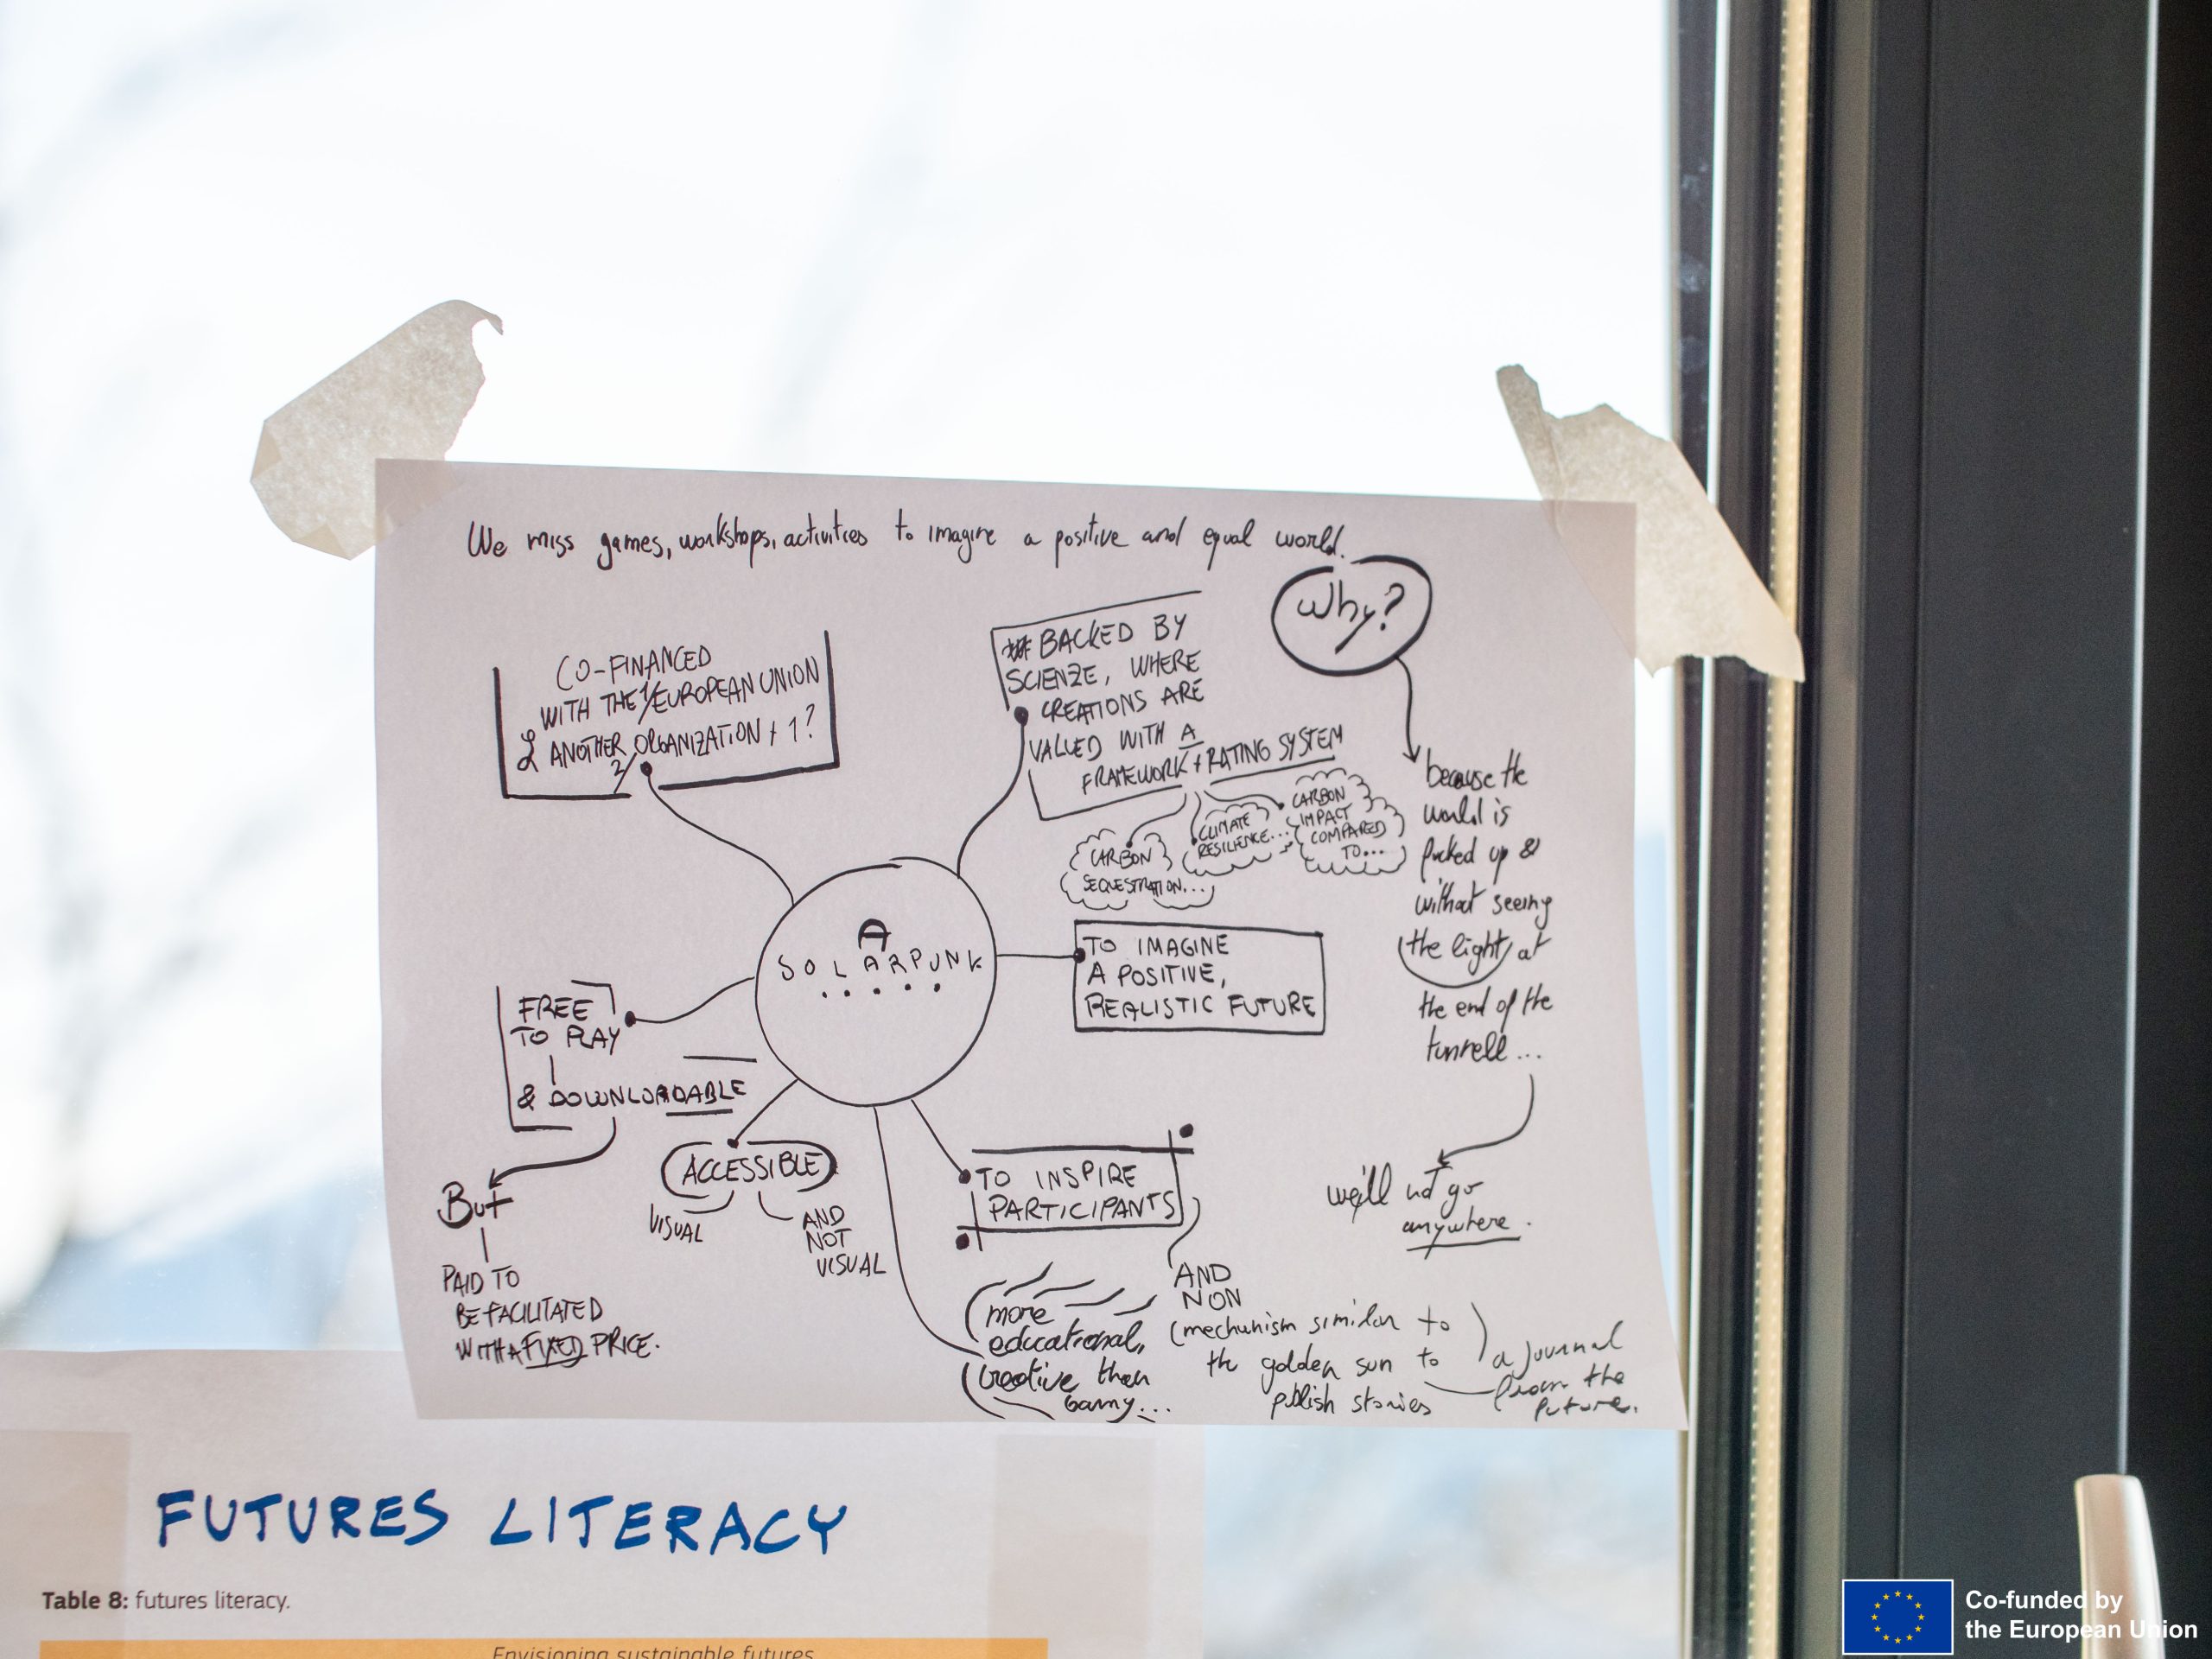 We miss games, workshops, activities to imagine a positive and equal world.
Why?
because the
world is
fucked up &
without seeing
the light at
the end of the
tunnell...
we'll not go
anywhere.
CO-FINANCED
WITH THE 1/EUROPEAN UNION
& ANOTHER ORGANIZATION + 1?
2/
BACKED BY
SCIENZE, WHERE
CREATIONS ARE
VALUED WITH A
FRAMEWORK + RATING SYSTEM
CARBON
SEQUESTRATION...
CLIMATE
RESILIENCE...
CARBON
IMPACT
COMPARED
TO...
A
SOLARPUNK
.....
TO IMAGINE
A POSITIVE,
REALISTIC FUTURE
FREE
TO PLAY
& DOWNLOADABLE
But
PAID TO
BE FACILITATED
WITH A FIXED PRICE.
ACCESSIBLE
VISUAL
AND
NOT
VISUAL
TO INSPIRE
PARTICIPANTS
AND
NON
more
educational,
creative then
gamy...
(mechanism similar to
the golden sun to
publish stories
a journal
from the
future.
FUTURES LITERACY
Table 8: futures literacy.
Envisioning sustainable futures
Co-funded by
the European Union